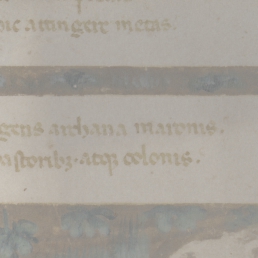 hic attingere metas.
gens archana maronis.
pastoribz atqz colonis.